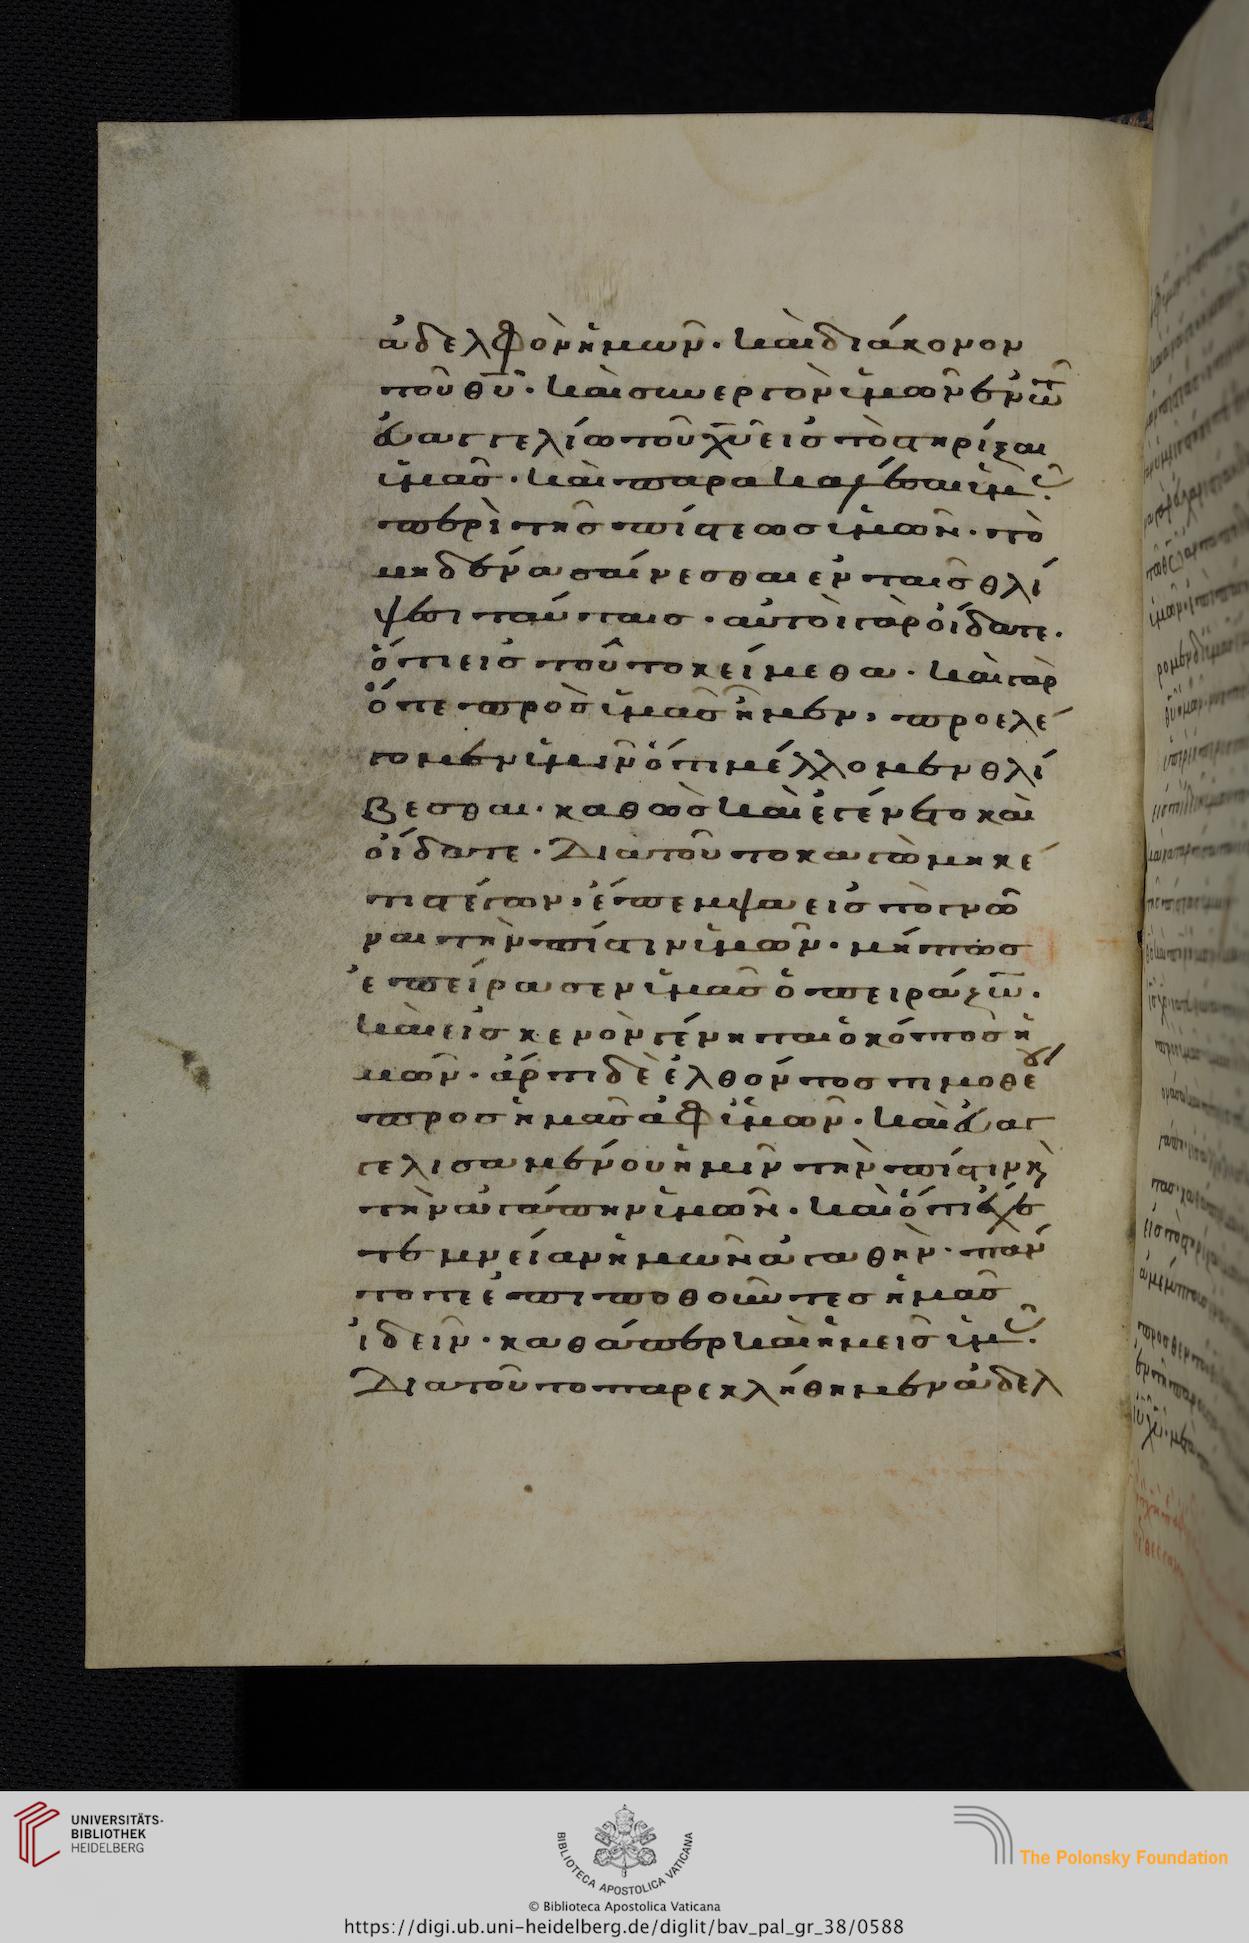 ἀδελφὸν ἡμῶν· καὶ διάκονον
τοῦ θυ̅· καὶ συνεργὸν ἡμῶν ἐν τῶ
εὐαγγελίω τοῦ χυ̅ εἰσ τὸ στηρίξαι
ὑμᾶσ· καὶ παρακαλέσαι ὑμᾶσ
περὶ τῆσ πίστεωσ ὑμῶν· τὸ
μηδένα σαίνεσθαι ἐν ταῖσ θλί
ψεσι ταύταισ· αὐτοὶ γὰρ οἴδατε·
ὅτι εἰσ τοῦτο κείμεθα· καὶ γὰρ
ὅτε πρὸσ ὑμᾶσ ἦμεν, προελέ
γομεν ὑμῖν ὅτι μέλλομεν θλί
βεσθαι· καθὼσ καὶ ἐγένετο καὶ
οἴδατε· Διὰ τοῦτο κἀγὼ μηκέ
τι στέγων, ἔπεμψα εἰσ τὸ γνῶ
ναι τὴν πίστιν ὑμῶν· μήπωσ
ἐπείρασεν ὑμᾶσ ὁ πειράζων·
καὶ εἰσ κενὸν γένηται ὁ κόποσ ἡ
μῶν· ἄρτι δὲ ἐλθόντοσ τιμοθέου
προσ ἡμᾶσ ἀφ ὑμῶν· καὶ εὐαγ
γελισαμένου ἡμῖν τὴν πίστιν κὶ
τὴν ἀγάπην ὑμῶν· καὶ ὅτι ἔχε
τε μνείαν ἡμῶν ἀγαθὴν· πάν
τοτε ἐπιποθοῦντεσ ἡμᾶσ
ἰδεῖν· καθάπερ καὶ ἡμεῖσ ὑμᾶσ·
Διὰ τοῦτο παρεκλήθημεν ἀδελ
UNIVERSITÄTS-
BIBLIOTHEK
HEIDELBERG
BIBLIOTECA APOSTOLICA VATICANA
The Polonsky Foundation
© Biblioteca Apostolica Vaticana
https://digi.ub.uni-heidelberg.de/diglit/bav_pal_gr_38/0588